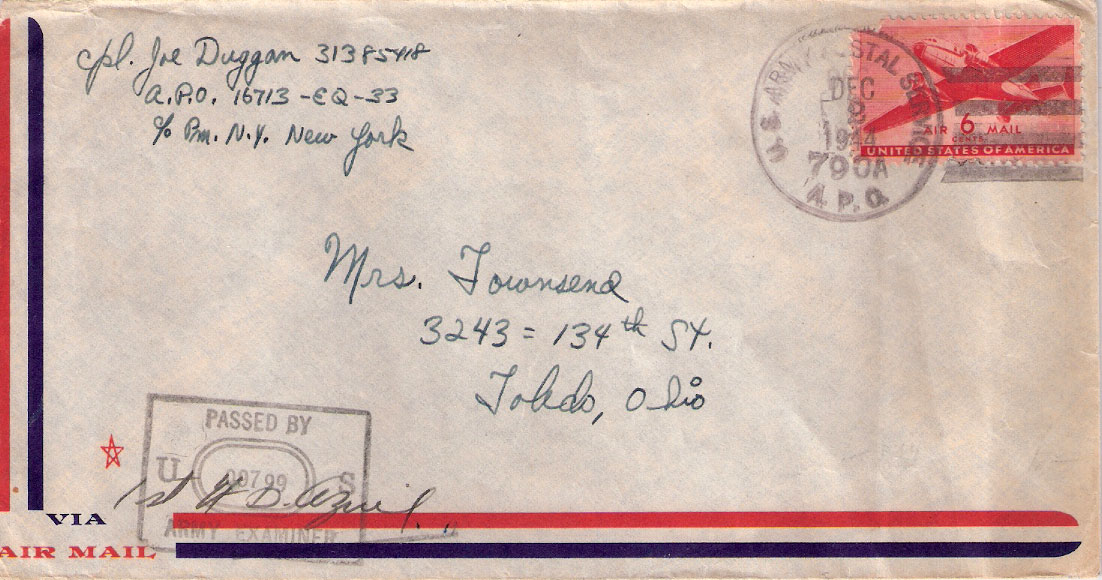 cpl. Joe Duggan 31385418
A.P.O. 16713-EQ-33
c/o Pm. N.Y. New York
U.S. ARMY POSTAL SERVICE
DEC
8
1944
790A
A.P.O.
AIR 6 MAIL
CENTS
UNITED STATES OF AMERICA
Mrs. Townsend
3243 = 134th St.
Toledo, Ohio
PASSED BY
U 00799 S
ARMY EXAMINER
VIA
AIR MAIL